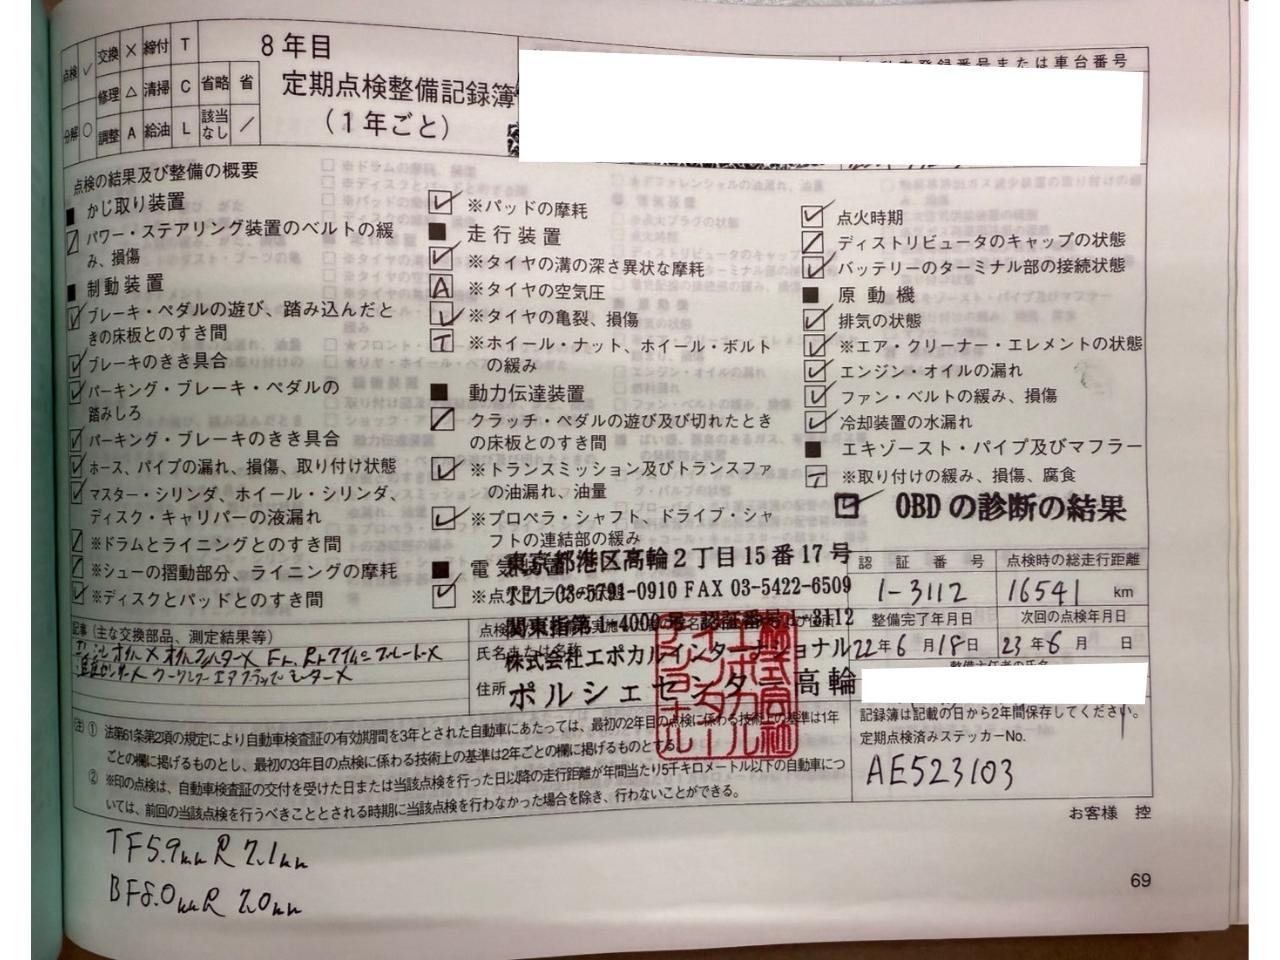 点検 ✓ 交換 X 締付 T
修理 △ 清掃 C 省略 省
分解 ○ 調整 A 給油 L 該当なし /
8年目
定期点検整備記録簿
(1年ごと)
番号または車台番号
点検の結果及び整備の概要
■ かじ取り装置
パワー・ステアリング装置のベルトの緩
み、損傷
■ 制動装置
ブレーキ・ペダルの遊び、踏み込んだと
きの床板とのすき間
ブレーキのきき具合
パーキング・ブレーキ・ペダルの
踏みしろ
パーキング・ブレーキのきき具合
ホース、パイプの漏れ、損傷、取り付け状態
マスター・シリンダ、ホイール・シリンダ、
ディスク・キャリパーの液漏れ
※ドラムとライニングとのすき間
※シューの摺動部分、ライニングの摩耗
※ディスクとパッドとのすき間
※パッドの摩耗
■ 走行装置
※タイヤの溝の深さ異状な摩耗
A ※タイヤの空気圧
※タイヤの亀裂、損傷
T ※ホイール・ナット、ホイール・ボルト
の緩み
■ 動力伝達装置
クラッチ・ペダルの遊び及び切れたとき
の床板とのすき間
※トランスミッション及びトランスファ
の油漏れ、油量
※プロペラ・シャフト、ドライブ・シャ
フトの連結部の緩み
■ 電気装置
点火時期
ディストリビュータのキャップの状態
バッテリーのターミナル部の接続状態
■ 原動機
排気の状態
※エア・クリーナー・エレメントの状態
エンジン・オイルの漏れ
ファン・ベルトの緩み、損傷
冷却装置の水漏れ
■ エキゾースト・パイプ及びマフラー
T ※取り付けの緩み、損傷、腐食
OBDの診断の結果
東京都港区高輪2丁目15番17号
TEL 03-5791-0910 FAX 03-5422-6509
関東指第1-4000号 認証番号1-3112
株式会社エポカルインターナショナル
ポルシェセンター高輪
氏名または名称
住所
認証番号
1-3112
点検時の総走行距離
16541 km
整備完了年月日
22年6月18日
次回の点検年月日
23年6月 日
記録簿は記載の日から2年間保存してください。
定期点検済みステッカーNo.
AE523103
記事(主な交換部品、測定結果等)
(注)① 法第61条第2項の規定により自動車検査証の有効期間を3年とされた自動車にあたっては、最初の2年目の点検に係わる技術上の基準は1年
ごとの欄に掲げるものとし、最初の3年目の点検に係わる技術上の基準は2年ごとの欄に掲げるものとする。
② ※印の点検は、自動車検査証の交付を受けた日または当該点検を行った日以降の走行距離が年間当たり5千キロメートル以下の自動車につ
いては、前回の当該点検を行うべきこととされる時期に当該点検を行わなかった場合を除き、行わないことができる。
お客様 控
TF5.9mm R 7.1mm
BF8.0mm R 7.0mm
69